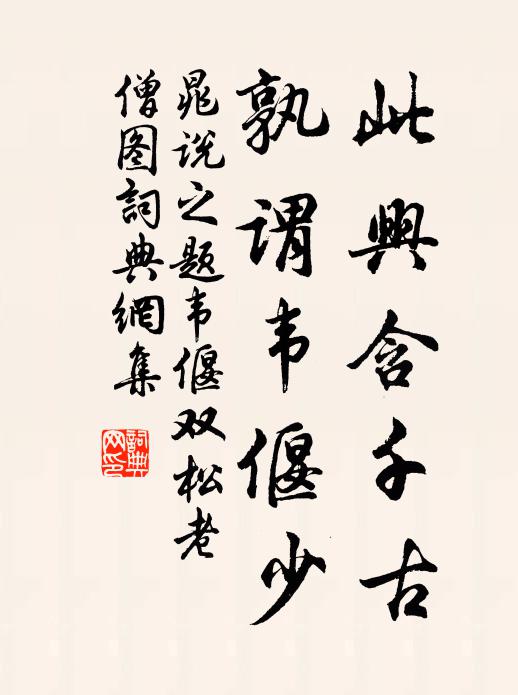 此興含千古
孰谓韦偃少
晁说之题韦偃双松老
僧图詞典網集
詞典
网印